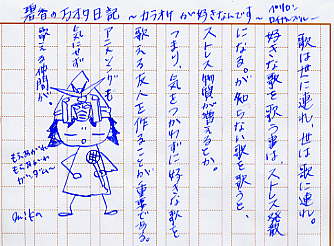 碧春のガオタ日記 ～カラオケが好きなんです～
歌は世に連れ、世は歌に連れ。
好きな歌を歌う事は、ストレス発散
になる。が知らない歌を歌うと、
ストレス物質が増えるとか。
つまり、気をつかわずに好きな歌を
歌える友人を作ることが重要である。
アニメソングも
気にせず
歌える仲間が。
もえあがれ
もえあがれ
ガンダム～